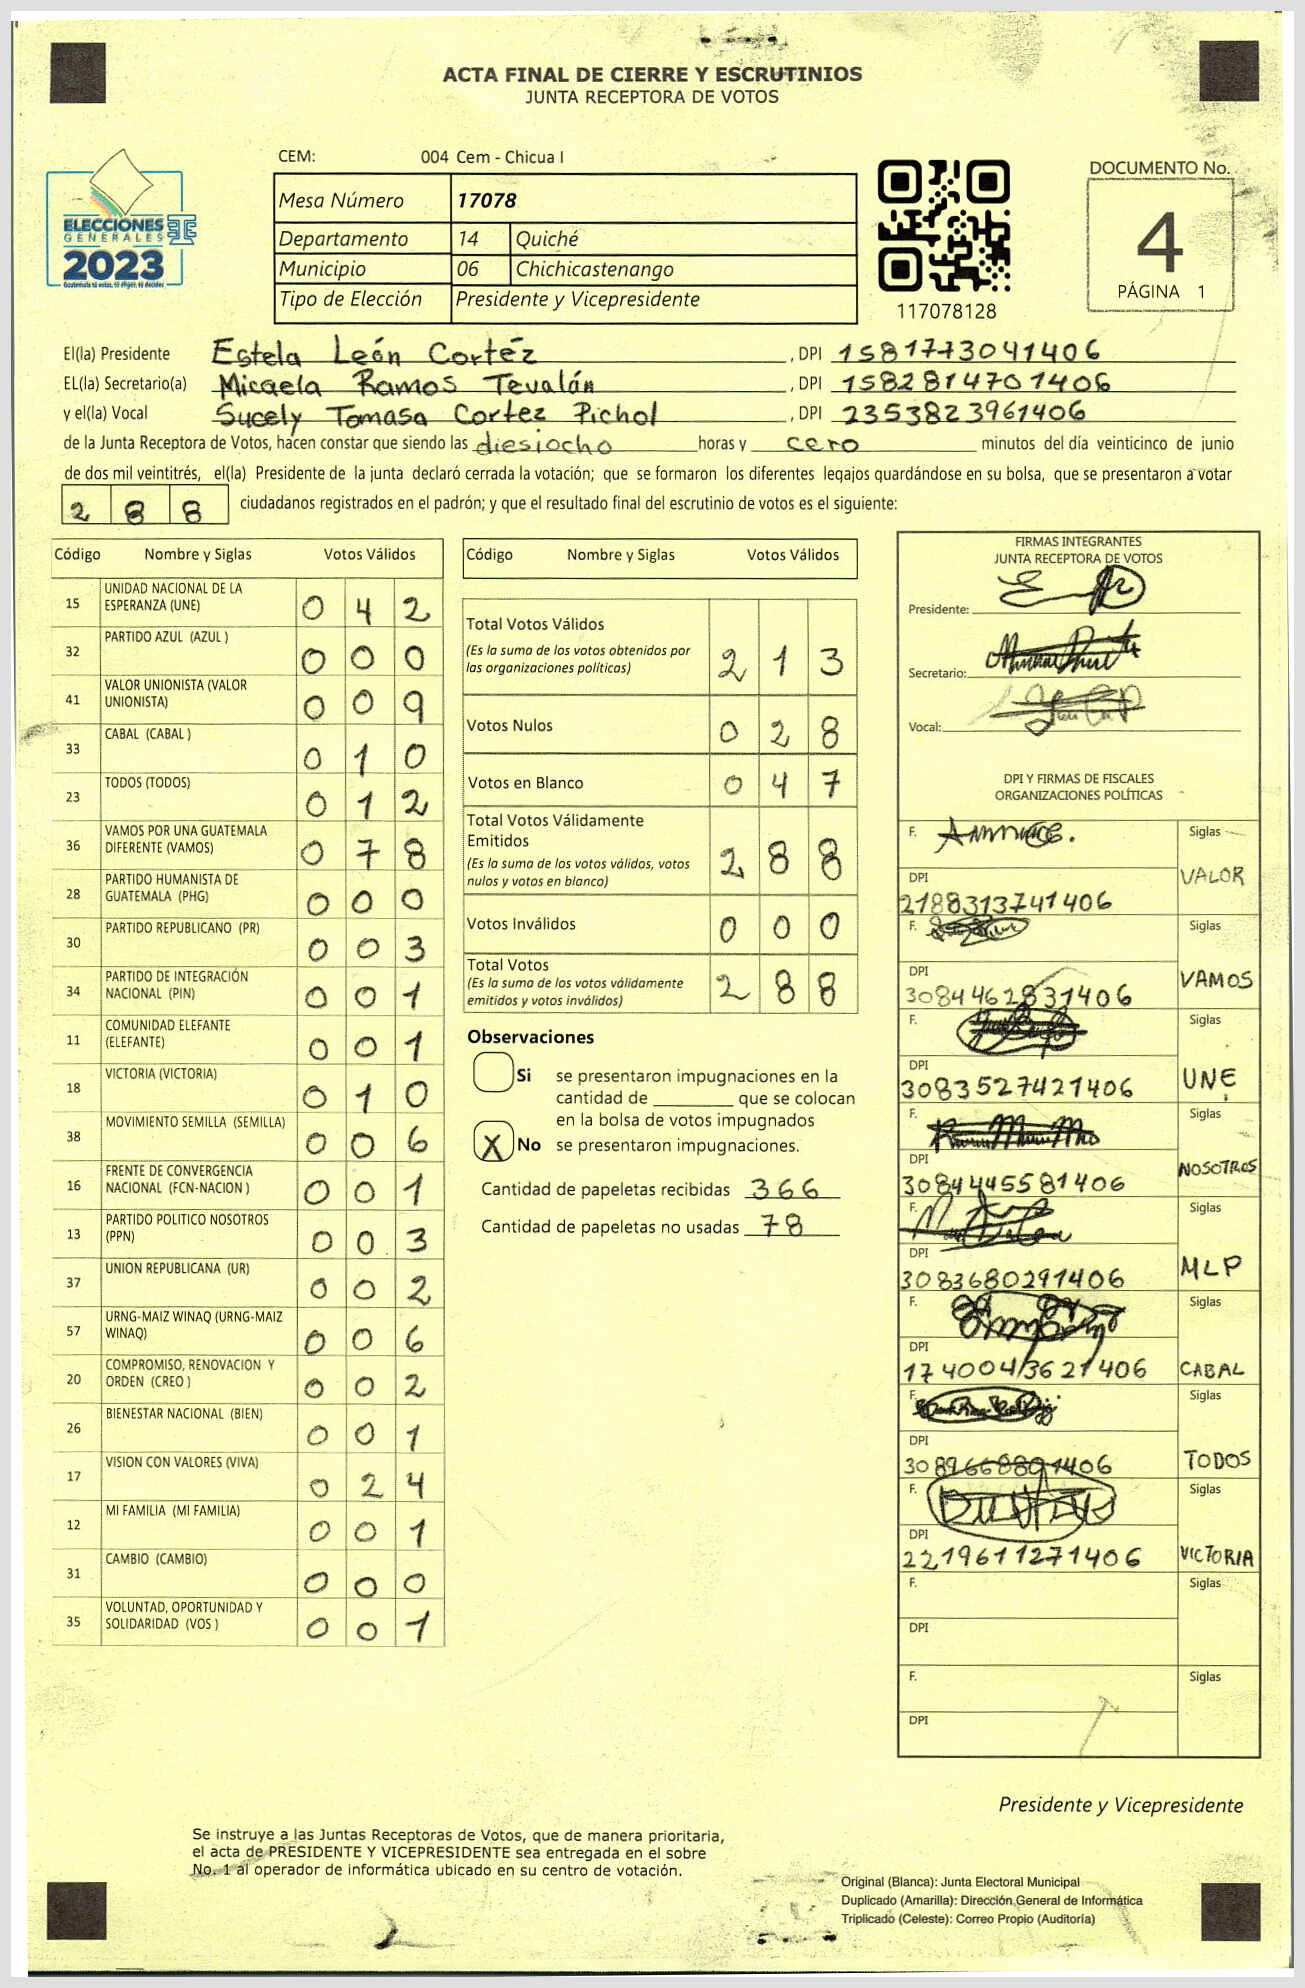 ACTA FINAL DE CIERRE Y ESCRUTINIOS
JUNTA RECEPTORA DE VOTOS
CEM: 004 Cem - Chicua I
ELECCIONES
GENERALES
2023
Guatemala tú votas, tú eliges, tú decides
Mesa Número 17078
Departamento 14 Quiché
Municipio 06 Chichicastenango
Tipo de Elección Presidente y Vicepresidente
117078128
DOCUMENTO No.
4
PÁGINA 1
El(la) Presidente Estela León Cortéz, DPI 1581773041406
EL(la) Secretario(a) Micaela Ramos Tevalán, DPI 1582814701406
y el(la) Vocal Sucely Tomasa Cortez Pichol, DPI 2353823961406
de la Junta Receptora de Votos, hacen constar que siendo las diesiocho horas y cero minutos del día veinticinco de junio
de dos mil veintitrés, el(la) Presidente de la junta declaró cerrada la votación; que se formaron los diferentes legajos guardándose en su bolsa, que se presentaron a votar
288 ciudadanos registrados en el padrón; y que el resultado final del escrutinio de votos es el siguiente:
Código Nombre y Siglas Votos Válidos
15 UNIDAD NACIONAL DE LA ESPERANZA (UNE) 0 4 2
32 PARTIDO AZUL (AZUL ) 0 0 0
41 VALOR UNIONISTA (VALOR UNIONISTA) 0 0 9
33 CABAL (CABAL ) 0 1 0
23 TODOS (TODOS) 0 1 2
36 VAMOS POR UNA GUATEMALA DIFERENTE (VAMOS) 0 7 8
28 PARTIDO HUMANISTA DE GUATEMALA (PHG) 0 0 0
30 PARTIDO REPUBLICANO (PR) 0 0 3
34 PARTIDO DE INTEGRACIÓN NACIONAL (PIN) 0 0 1
11 COMUNIDAD ELEFANTE (ELEFANTE) 0 0 1
18 VICTORIA (VICTORIA) 0 1 0
38 MOVIMIENTO SEMILLA (SEMILLA) 0 0 6
16 FRENTE DE CONVERGENCIA NACIONAL (FCN-NACION ) 0 0 1
13 PARTIDO POLITICO NOSOTROS (PPN) 0 0 3
37 UNION REPUBLICANA (UR) 0 0 2
57 URNG-MAIZ WINAQ (URNG-MAIZ WINAQ) 0 0 6
20 COMPROMISO, RENOVACION Y ORDEN (CREO ) 0 0 2
26 BIENESTAR NACIONAL (BIEN) 0 0 1
17 VISION CON VALORES (VIVA) 0 2 4
12 MI FAMILIA (MI FAMILIA) 0 0 1
31 CAMBIO (CAMBIO) 0 0 0
35 VOLUNTAD, OPORTUNIDAD Y SOLIDARIDAD (VOS ) 0 0 1
Código Nombre y Siglas Votos Válidos
Total Votos Válidos 2 1 3
(Es la suma de los votos obtenidos por
las organizaciones políticas)
Votos Nulos 0 2 8
Votos en Blanco 0 4 7
Total Votos Válidamente
Emitidos 2 8 8
(Es la suma de los votos válidos, votos
nulos y votos en blanco)
Votos Inválidos 0 0 0
Total Votos 2 8 8
(Es la suma de los votos válidamente
emitidos y votos inválidos)
Observaciones
Si se presentaron impugnaciones en la
cantidad de ________ que se colocan
en la bolsa de votos impugnados
X No se presentaron impugnaciones.
Cantidad de papeletas recibidas 366
Cantidad de papeletas no usadas 78
FIRMAS INTEGRANTES
JUNTA RECEPTORA DE VOTOS
Presidente:
Secretario:
Vocal:
DPI Y FIRMAS DE FISCALES
ORGANIZACIONES POLÍTICAS
F. Siglas
DPI VALOR
2188313741406
F. Siglas
DPI VAMOS
3084462831406
F. Siglas
DPI UNE
3083527421406
F. Siglas
DPI NOSOTROS
3084445581406
F. Siglas
DPI MLP
3083680291406
F. Siglas
DPI CABAL
1740043621406
F. Siglas
DPI TODOS
3089668801406
F. Siglas
DPI VICTORIA
2219611271406
F. Siglas
DPI
F. Siglas
DPI
Presidente y Vicepresidente
Se instruye a las Juntas Receptoras de Votos, que de manera prioritaria,
el acta de PRESIDENTE Y VICEPRESIDENTE sea entregada en el sobre
No. 1 al operador de informática ubicado en su centro de votación.
Original (Blanca): Junta Electoral Municipal
Duplicado (Amarilla): Dirección General de Informática
Triplicado (Celeste): Correo Propio (Auditoría)